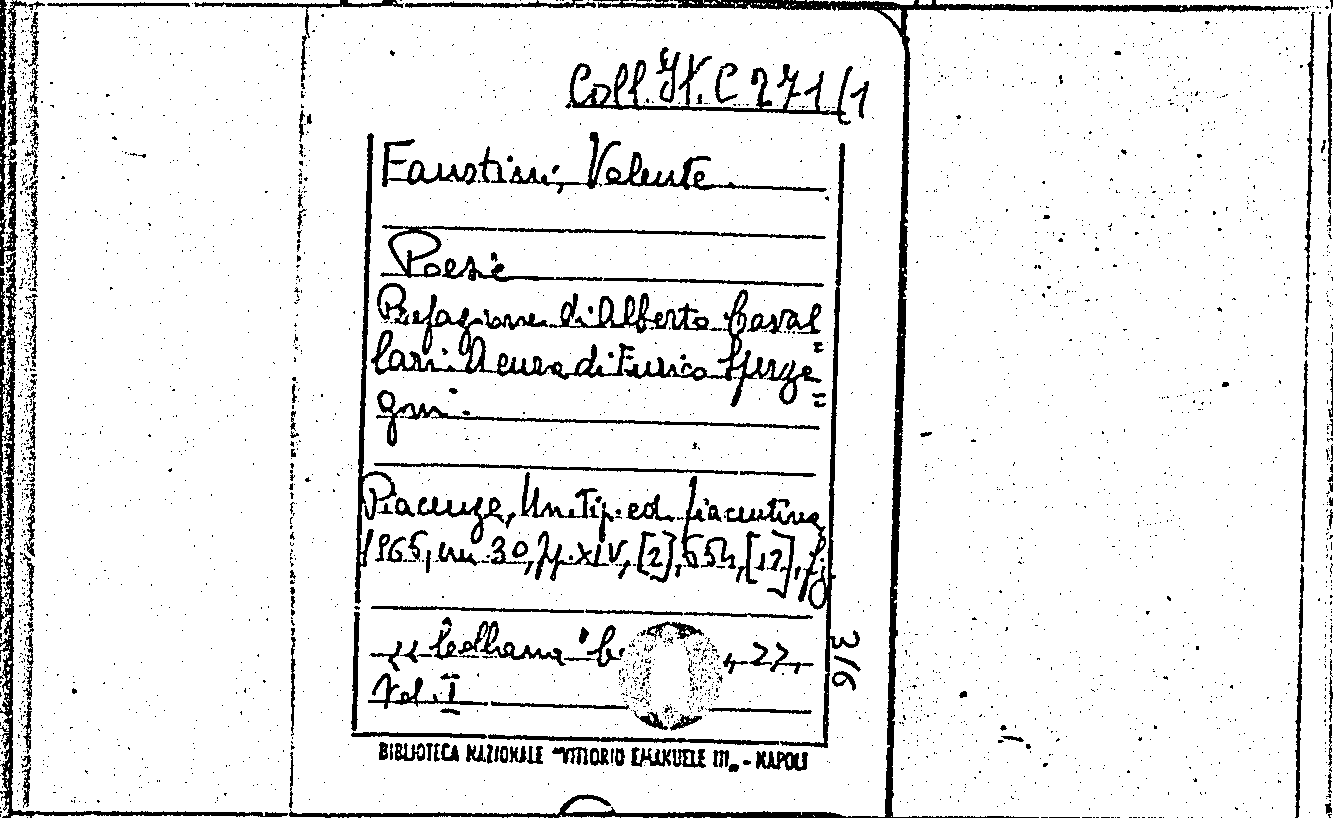 Coll. It. C 271/1
Faustini, Valente.
Poesie
Prefazione di Alberto Caval
lari. A cura di Enrico Sperze
gni.
Piacenza, Un. Tip. ed. piacentina
1965, in 30, pp. XIV, [2], 554, [12], fig.
"Collana
, 27,
Vol. I
3/6
BIBLIOTECA NAZIONALE "VITTORIO EMANUELE III„ - NAPOLI